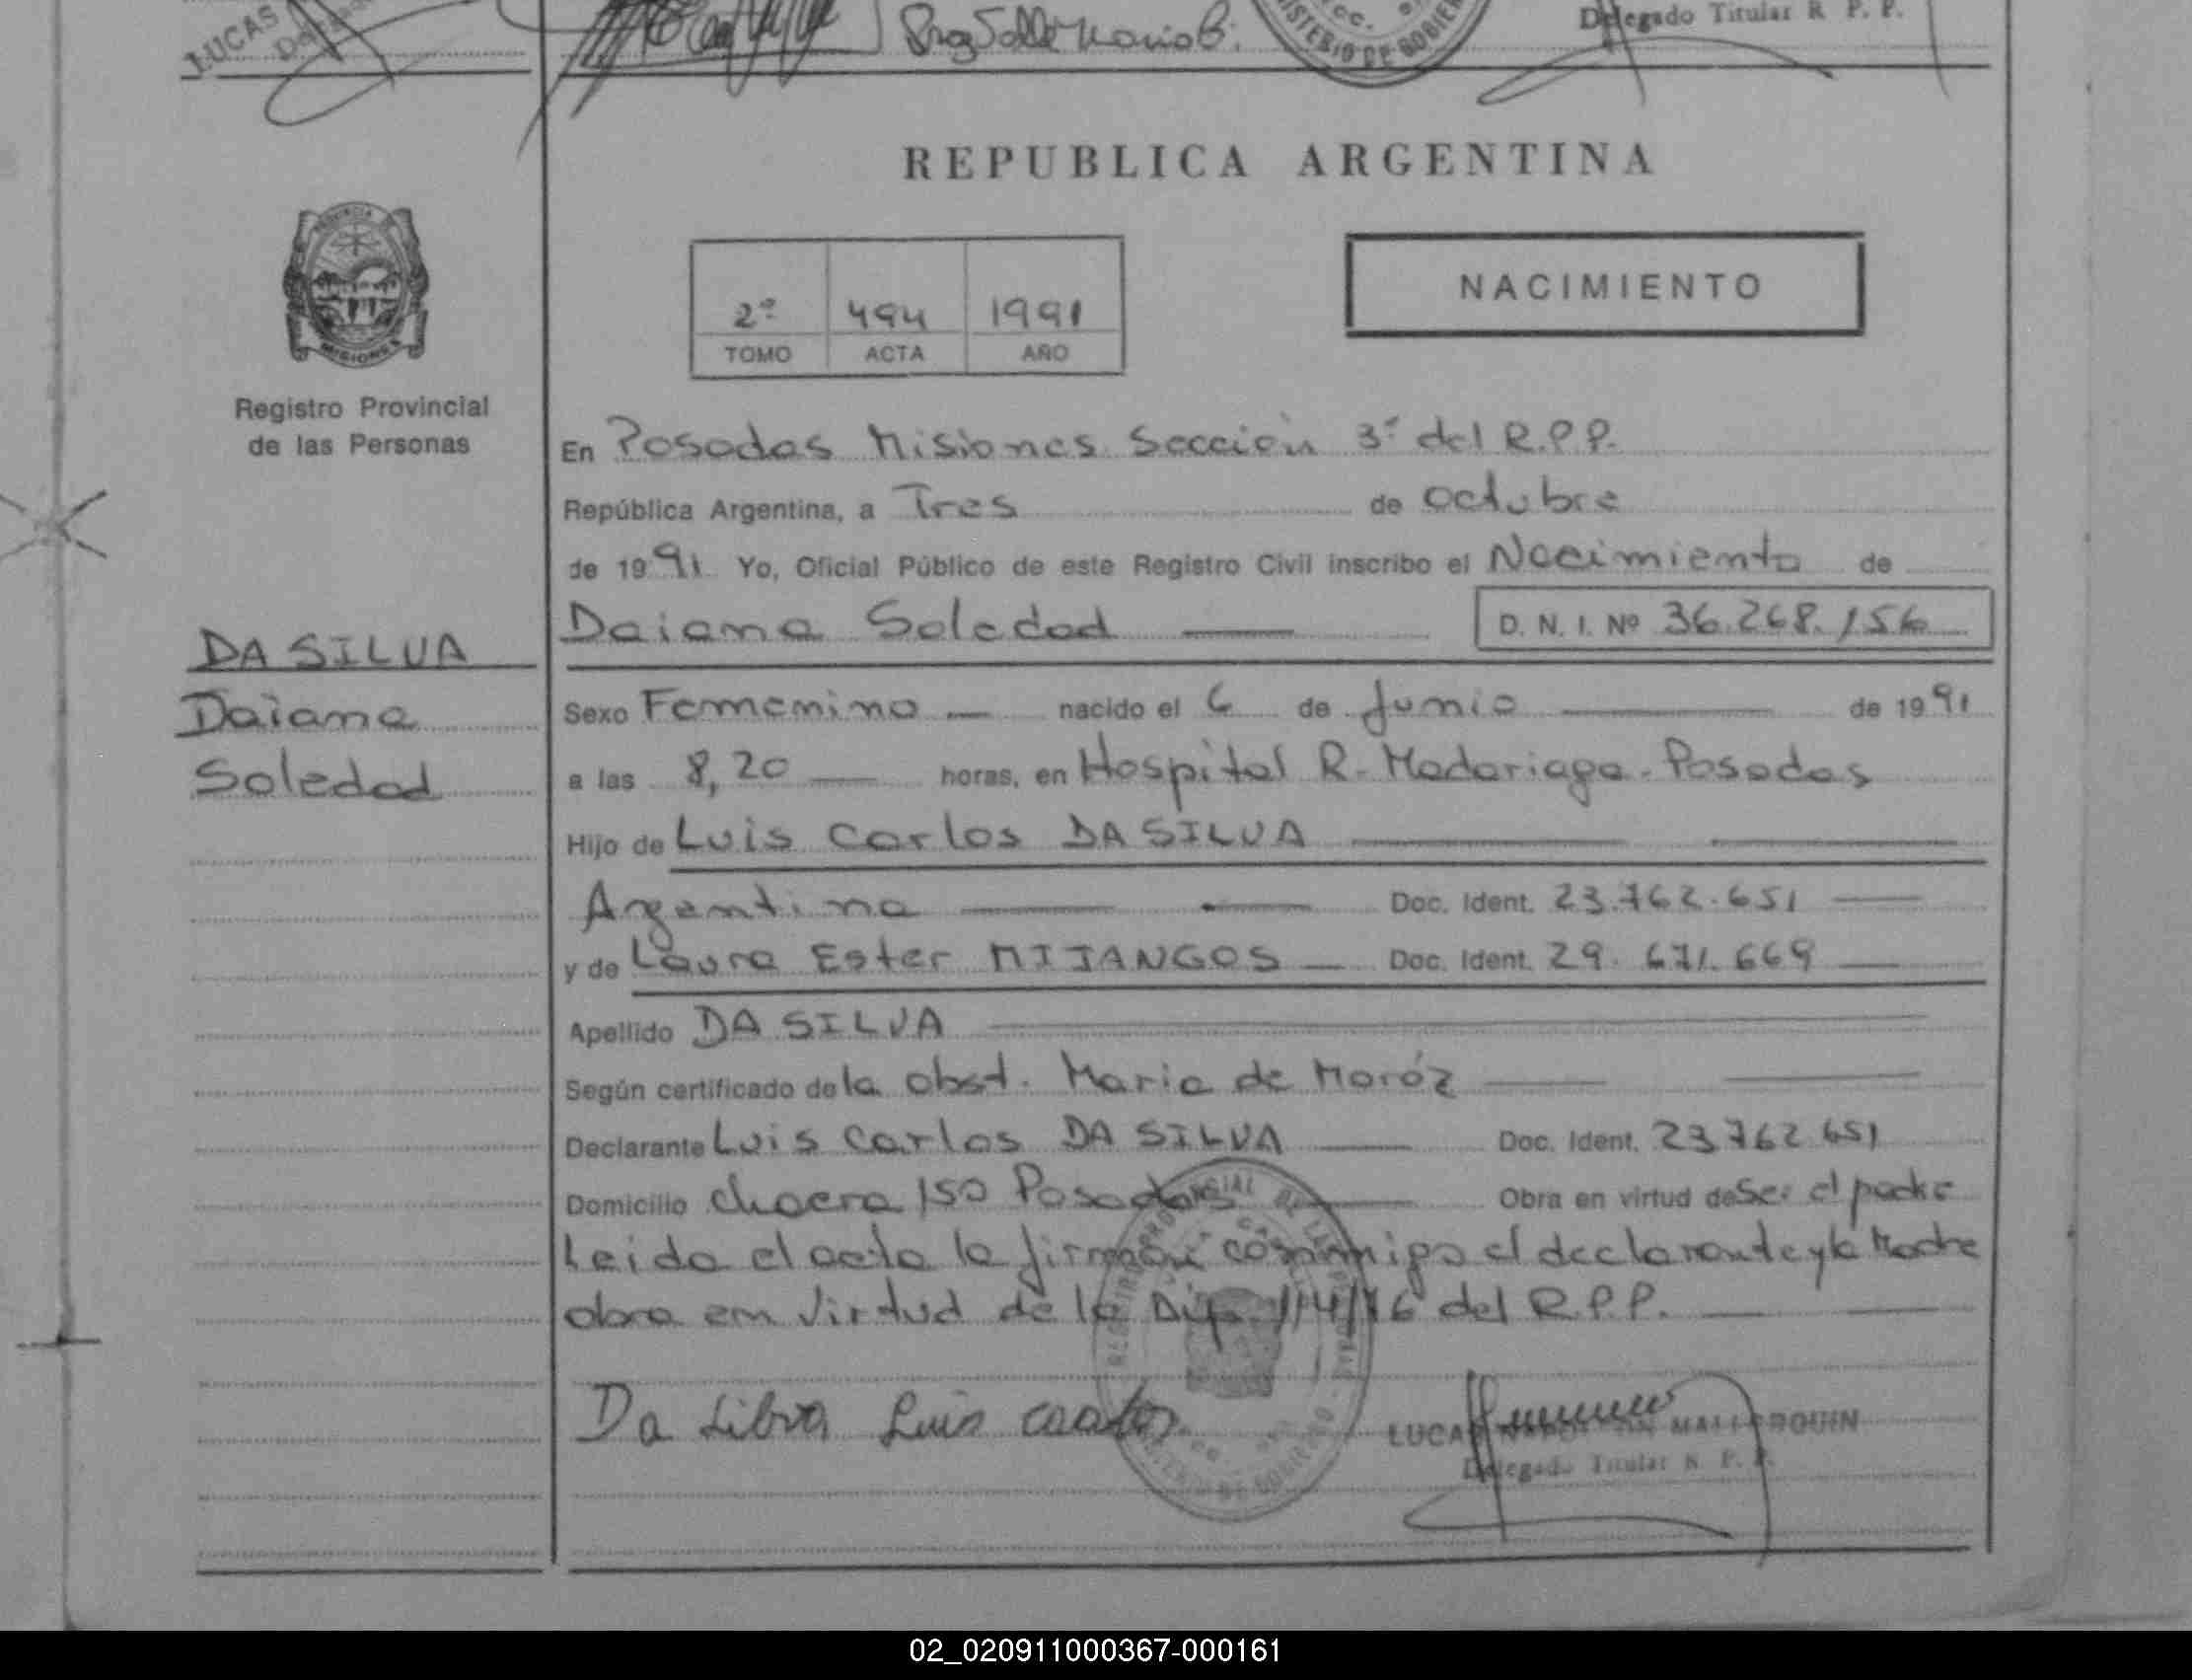 LUCAS
Delegado Titular R. P. P.
MINISTERIO DE GOBIERNO
REPUBLICA ARGENTINA
PROVINCIA
MISIONES
2º 494 1991
TOMO ACTA AÑO
NACIMIENTO
Registro Provincial
de las Personas
En Posadas Misiones Sección 3ª del R.P.P.
República Argentina, a Tres de octubre
de 1991 Yo, Oficial Público de este Registro Civil inscribo el Nacimiento de
Daiana Soledad D. N. I. Nº 36.268.156
DA SILVA
Daiana
Soledad
Sexo Femenino nacido el 6 de Junio de 1991
a las 8,20 horas, en Hospital R. Madariaga - Posadas
Hijo de Luis Carlos DA SILVA
Argentina Doc. Ident. 23.762.651
y de Laura Ester MIJANGOS Doc. Ident. 29.671.669
Apellido DA SILVA
Según certificado de la obst. Maria de Moróz
Declarante Luis Carlos DA SILVA Doc. Ident. 23.762.651
Domicilio chacra 150 Posadas Obra en virtud de Ser el padre
Leida el acta la firman conmigo el declarante y la Madre
obra en virtud de la Dip. 114/76 del R.P.P.
Da Silva Luis Carlos
LUCAS MALLORQUIN
Delegado Titular R. P. P.
02_020911000367-000161